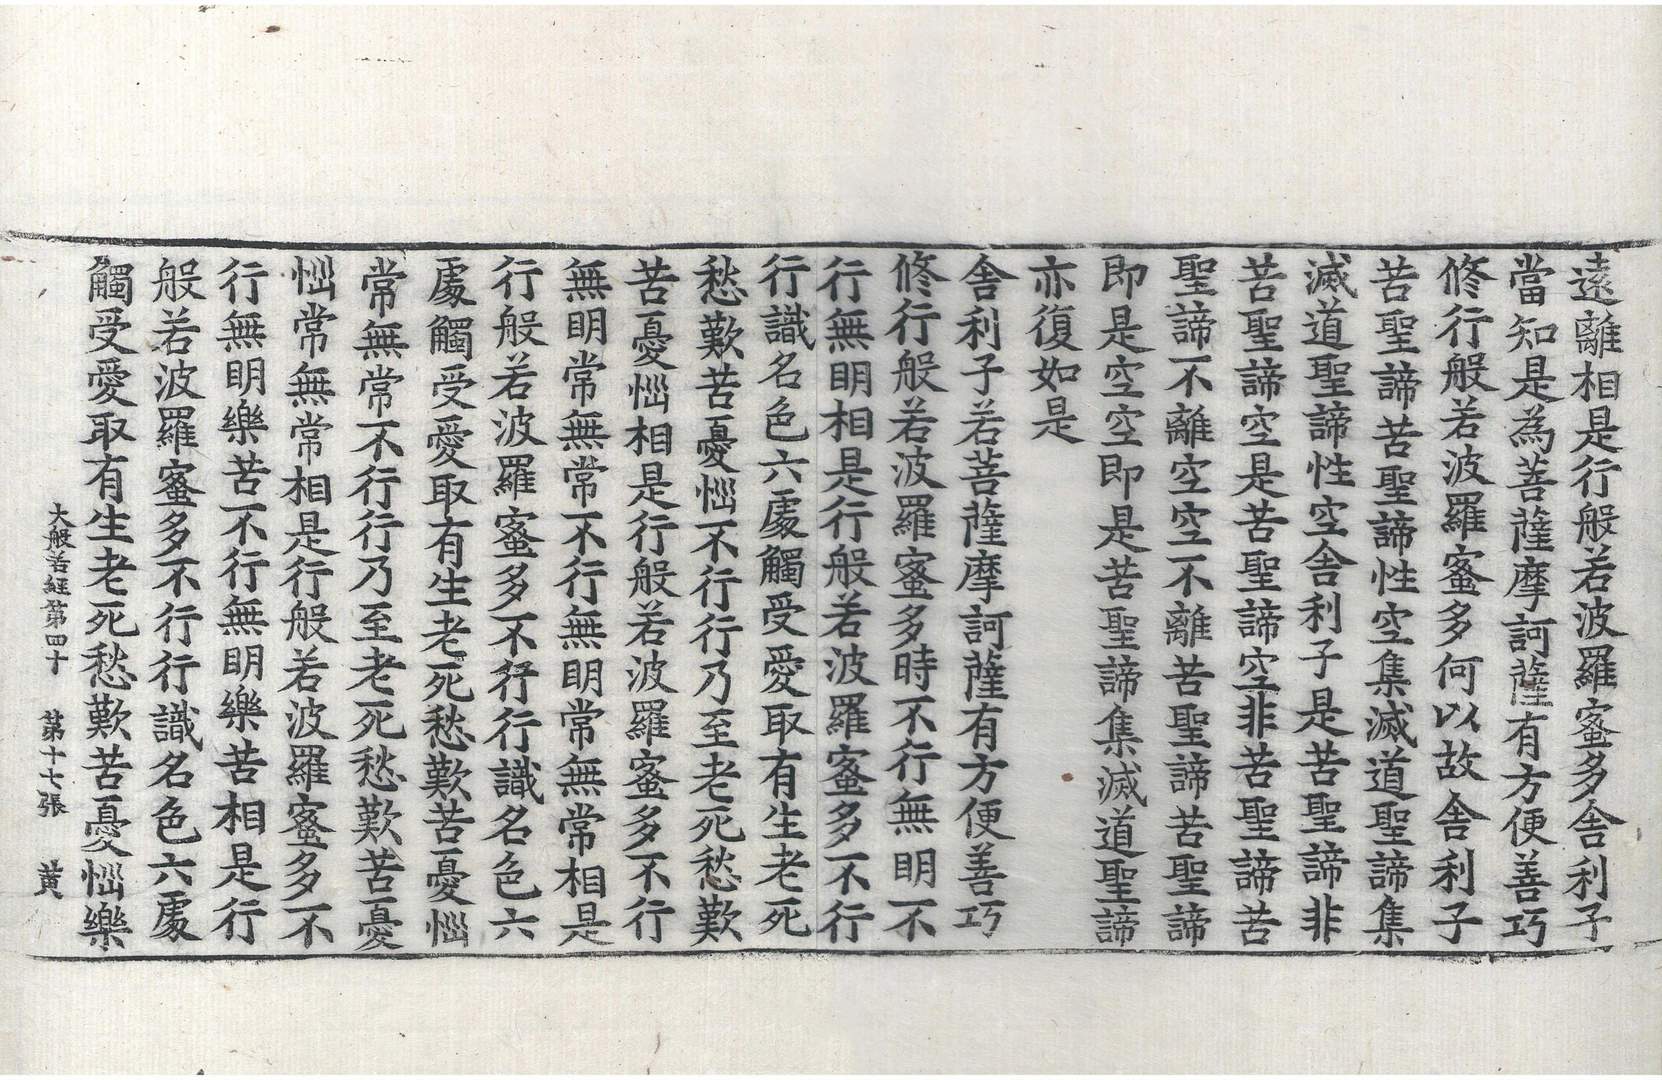 遠離相是行般若波羅蜜多舍利子
當知是為菩薩摩訶薩有方便善巧
修行般若波羅蜜多何以故舍利子
苦聖諦苦聖諦性空集滅道聖諦集
滅道聖諦性空舍利子是苦聖諦非
苦聖諦空是苦聖諦空非苦聖諦苦
聖諦不離空空不離苦聖諦苦聖諦
即是空空即是苦聖諦集滅道聖諦
亦復如是
舍利子若菩薩摩訶薩有方便善巧
修行般若波羅蜜多時不行無明不
行無明相是行般若波羅蜜多不行
行識名色六處觸受愛取有生老死
愁歎苦憂惱不行行乃至老死愁歎
苦憂惱相是行般若波羅蜜多不行
無明常無常不行無明常無常相是
行般若波羅蜜多不行行識名色六
處觸受愛取有生老死愁歎苦憂惱
常無常不行行乃至老死愁歎苦憂
惱常無常相是行般若波羅蜜多不
行無明樂苦不行無明樂苦相是行
般若波羅蜜多不行行識名色六處
觸受愛取有生老死愁歎苦憂惱樂
大般若經第四十 第十七張 黃